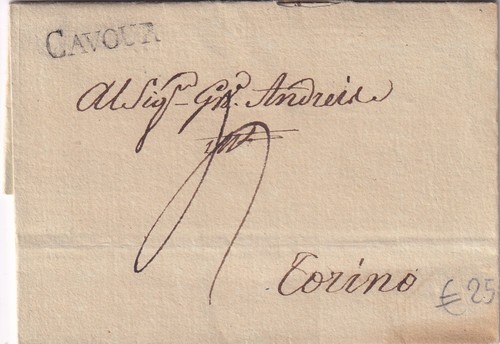 CAVOUR
Al Sig.r Gio. Andreis
Torino
€ 25